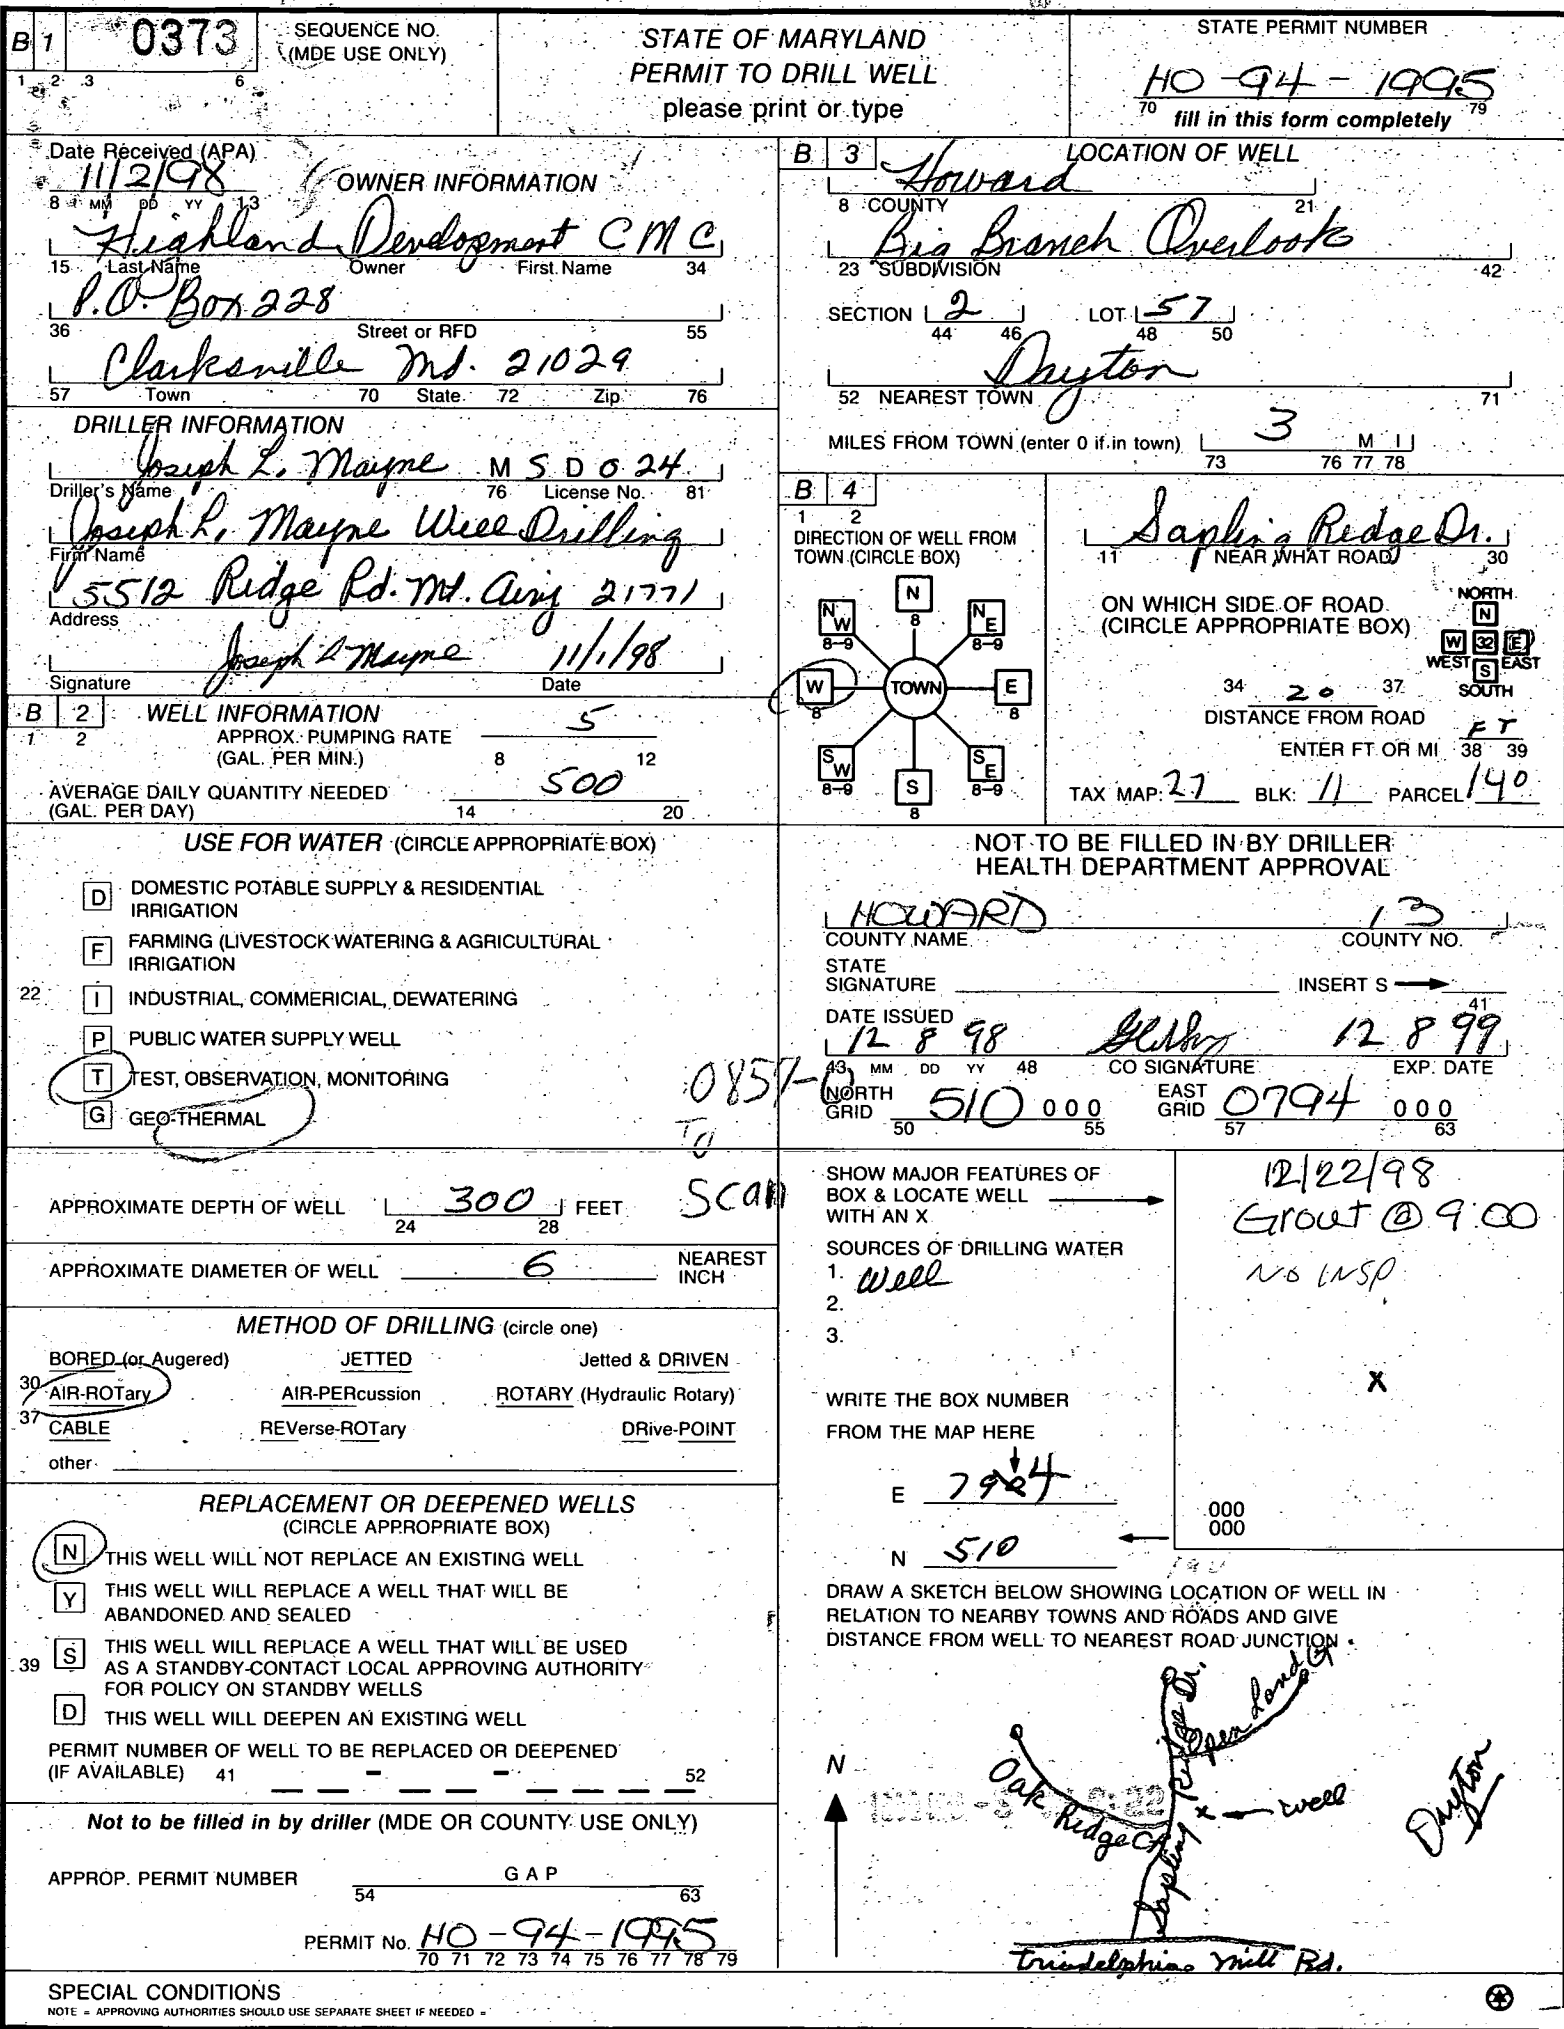 B 1 0373 SEQUENCE NO. (MDE USE ONLY)
1 2 3 6
STATE OF MARYLAND
PERMIT TO DRILL WELL
please print or type
STATE PERMIT NUMBER
HO-94-1995
70 79
fill in this form completely
Date Received (APA)
11/2/98
8 MM DD YY 13
OWNER INFORMATION
Highland Development C M C
15 Last Name Owner First Name 34
P.O. Box 228
36 Street or RFD 55
Clarksville Md. 21029
57 Town 70 State 72 Zip 76
DRILLER INFORMATION
Joseph L. Mayne M S D 0 24
Driller's Name 76 License No. 81
Joseph L. Mayne Well Drilling
Firm Name
5512 Ridge Rd. Mt. Airy 21771
Address
Joseph L Mayne 11/1/98
Signature Date
B 2 WELL INFORMATION
1 2
APPROX. PUMPING RATE 5
(GAL. PER MIN.) 8 12
AVERAGE DAILY QUANTITY NEEDED 500
(GAL. PER DAY) 14 20
USE FOR WATER (CIRCLE APPROPRIATE BOX)
D DOMESTIC POTABLE SUPPLY & RESIDENTIAL
IRRIGATION
F FARMING (LIVESTOCK WATERING & AGRICULTURAL
IRRIGATION
22 I INDUSTRIAL, COMMERICIAL, DEWATERING
P PUBLIC WATER SUPPLY WELL
T TEST, OBSERVATION, MONITORING
G GEO-THERMAL
To
Scan
APPROXIMATE DEPTH OF WELL 300 FEET
24 28
APPROXIMATE DIAMETER OF WELL 6 NEAREST
INCH
METHOD OF DRILLING (circle one)
BORED (or Augered) JETTED Jetted & DRIVEN
30 AIR-ROTary AIR-PERcussion ROTARY (Hydraulic Rotary)
37 CABLE REVerse-ROTary DRive-POINT
other
REPLACEMENT OR DEEPENED WELLS
(CIRCLE APPROPRIATE BOX)
N THIS WELL WILL NOT REPLACE AN EXISTING WELL
Y THIS WELL WILL REPLACE A WELL THAT WILL BE
ABANDONED AND SEALED
39 S THIS WELL WILL REPLACE A WELL THAT WILL BE USED
AS A STANDBY-CONTACT LOCAL APPROVING AUTHORITY
FOR POLICY ON STANDBY WELLS
D THIS WELL WILL DEEPEN AN EXISTING WELL
PERMIT NUMBER OF WELL TO BE REPLACED OR DEEPENED
(IF AVAILABLE) 41 - - 52
Not to be filled in by driller (MDE OR COUNTY USE ONLY)
APPROP. PERMIT NUMBER G A P
54 63
PERMIT No. HO-94-1995
70 71 72 73 74 75 76 77 78 79
SPECIAL CONDITIONS
NOTE = APPROVING AUTHORITIES SHOULD USE SEPARATE SHEET IF NEEDED =
B 3 LOCATION OF WELL
Howard
8 COUNTY 21
Big Branch Overlook
23 SUBDIVISION 42
SECTION 2 LOT 57
44 46 48 50
Dayton
52 NEAREST TOWN 71
MILES FROM TOWN (enter 0 if in town) 3 M I
73 76 77 78
B 4
1 2
DIRECTION OF WELL FROM
TOWN (CIRCLE BOX)
N
8
NW NE
8-9 8-9
W TOWN E
8 8
SW SE
8-9 8-9
S
8
Sapling Ridge Dr.
11 NEAR WHAT ROAD 30
ON WHICH SIDE OF ROAD
(CIRCLE APPROPRIATE BOX)
NORTH
N
W 32 E
WEST S EAST
SOUTH
34 20 37
DISTANCE FROM ROAD
ENTER FT OR MI FT
38 39
TAX MAP: 27 BLK: 11 PARCEL 140
NOT TO BE FILLED IN BY DRILLER
HEALTH DEPARTMENT APPROVAL
HOWARD 13
COUNTY NAME COUNTY NO.
STATE
SIGNATURE INSERT S
41
DATE ISSUED
12 8 98 12 8 99
43 MM DD YY 48 CO SIGNATURE EXP. DATE
NORTH GRID 510 000 EAST GRID 0794 000
50 55 57 63
SHOW MAJOR FEATURES OF
BOX & LOCATE WELL
WITH AN X
SOURCES OF DRILLING WATER
1. Well
2.
3.
WRITE THE BOX NUMBER
FROM THE MAP HERE
E
N 510
12/22/98
Grout @ 9:00
NO INSP
X
000
000
DRAW A SKETCH BELOW SHOWING LOCATION OF WELL IN
RELATION TO NEARBY TOWNS AND ROADS AND GIVE
DISTANCE FROM WELL TO NEAREST ROAD JUNCTION
N
Oak Ridge Ct
Sapling Ridge Dr.
Open Land Ct
x well
Dayton
Triadelphia Mill Rd.